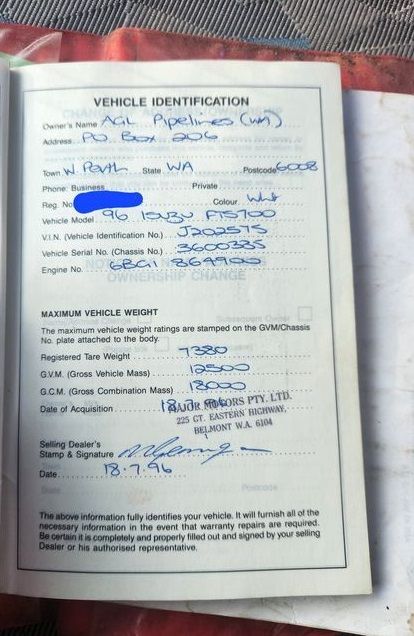 VEHICLE IDENTIFICATION
Owner's Name AGL Pipelines (WA)
Address PO Box 206
Town W Perth State WA Postcode 6008
Phone: Business Private
Reg. No Colour
Vehicle Model 96 ISUZU FTS700
V.I.N. (Vehicle Identification No.) J202575
Vehicle Serial No. (Chassis No.) 3600385
Engine No. 6BG1 864900
OWNERSHIP CHANGE
MAXIMUM VEHICLE WEIGHT
The maximum vehicle weight ratings are stamped on the GVM/Chassis
No. plate attached to the body.
Registered Tare Weight 7380
G.V.M. (Gross Vehicle Mass) 12500
G.C.M. (Gross Combination Mass) 18000
Date of Acquisition 18.7.96
MAJOR MOTORS PTY. LTD.
225 GT. EASTERN HIGHWAY,
BELMONT W.A. 6104
Selling Dealer's
Stamp & Signature
Date 18.7.96
The above information fully identifies your vehicle. It will furnish all of the
necessary information in the event that warranty repairs are required.
Be certain it is completely and properly filled out and signed by your selling
Dealer or his authorised representative.